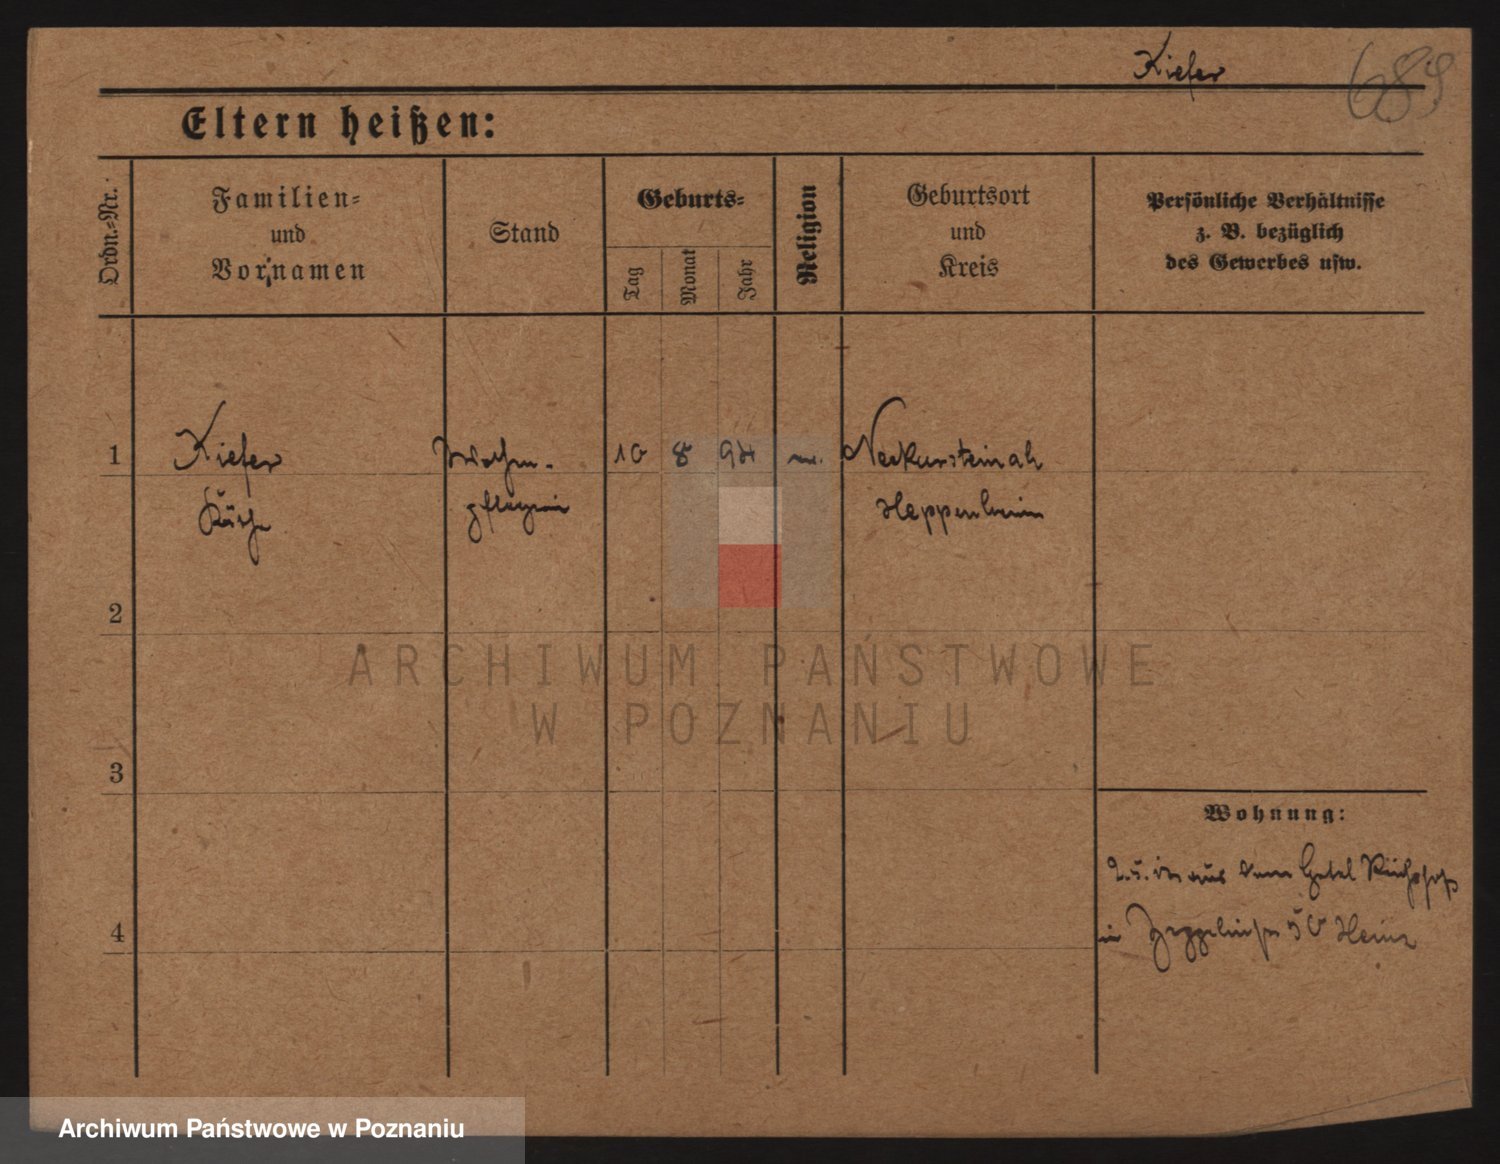 Kiefer 689
Eltern heißen:
Ordn.=Nr.
Familien=
und
Vornamen
Stand
Geburts=
Tag
Monat
Jahr
Religion
Geburtsort
und
Kreis
Persönliche Verhältnisse
z. B. bezüglich
des Gewerbes usw.
1 Kiefer 10 8 94 Neckarsteinach
Käthe pflegerin Heppenheim
2
3
4
Wohnung:
aus dem Hotel
in Zeppelinstr 50 Heinz
ARCHIWUM PAŃSTWOWE
W POZNANIU
Archiwum Państwowe w Poznaniu